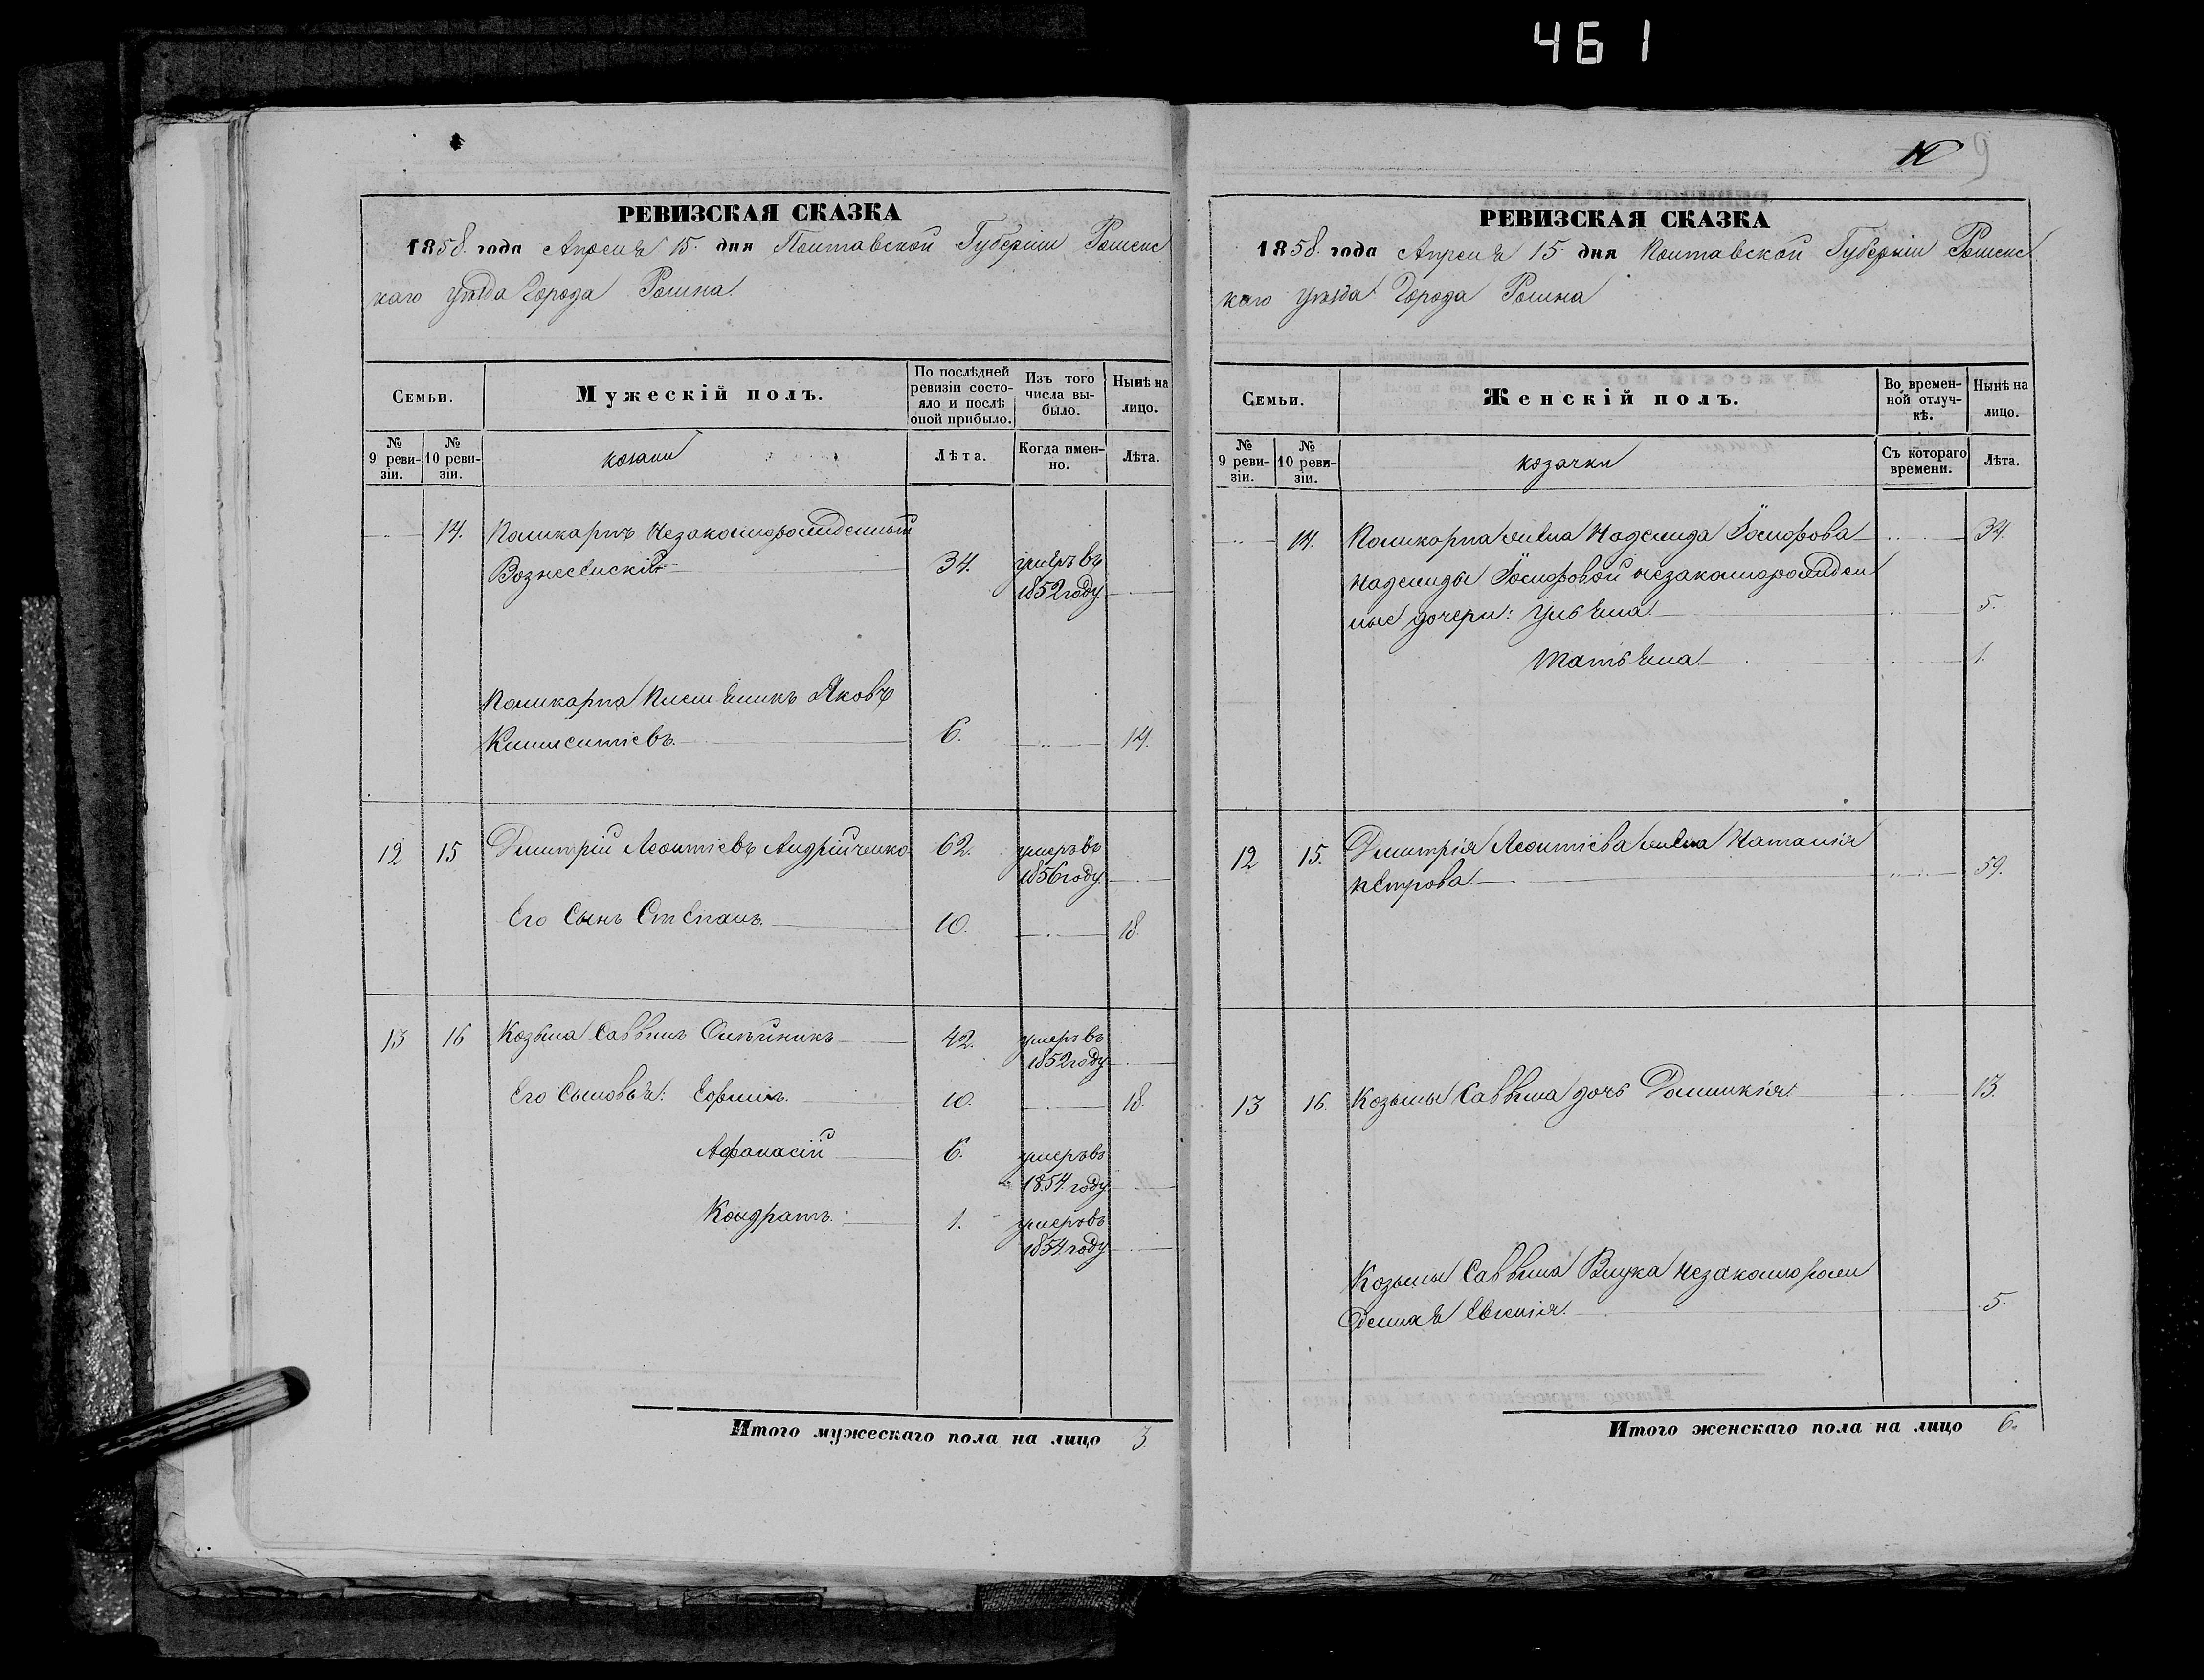 461
РЕВИЗСКАЯ СКАЗКА
1858. года Апреля 15. дня Полтавской Губерніи Роменс
каго уѣзда Города Ромна.
Семьи.
Мужескій полъ.
По послѣдней ревизіи состояло и послѣ оной прибыло.
Изъ того числа выбыло.
Нынѣ на лицо.
№ 9 ревизіи.
№ 10 ревизіи.
козаки
Лѣта.
Когда именно.
Лѣта.
14. Поликарпъ Незаконорожденный
Вознесенскій 34. умеръ въ
1852 году
Поликарпа Племянникъ Яковъ
Климентіевъ. 6. 14.
12 15 Дмитрій Леонтіевъ Андрійченко 62. умеръ въ
1856 году.
Его Сынъ Степанъ. 10. 18
13 16 Козьма Саввинъ Олѣйникъ 42. умеръ въ
1852 году
Его Сыновья: Ефимъ. 10. 18.
Афанасій 6. умеръ въ
1854. году
Кондратъ. 1. умеръ въ
1854. году
Итого мужескаго пола на лицо 3
РЕВИЗСКАЯ СКАЗКА
1858. года Апреля 15 дня Полтавской Губерніи Роменс
каго уѣзда Города Ромна
Семьи.
Женскій полъ.
Во временной отлучкѣ.
Нынѣ на лицо.
№ 9 ревизіи.
№ 10 ревизіи.
козачки
Съ котораго времени.
Лѣта.
14. Поликарпа жена Надежда Іосифова 34.
Надежды Іосифовой незаконорожден
ные дочери: Ульяна. 5.
Татьяна 1.
12 15. Дмитрія Леонтіева жена Наталія
Петрова. 59.
13 16. Козьмы Саввина дочь Домникія. 13.
Козьмы Саввина Внука незаконорож
денная Евгенія. 5.
Итого женскаго пола на лицо 6.